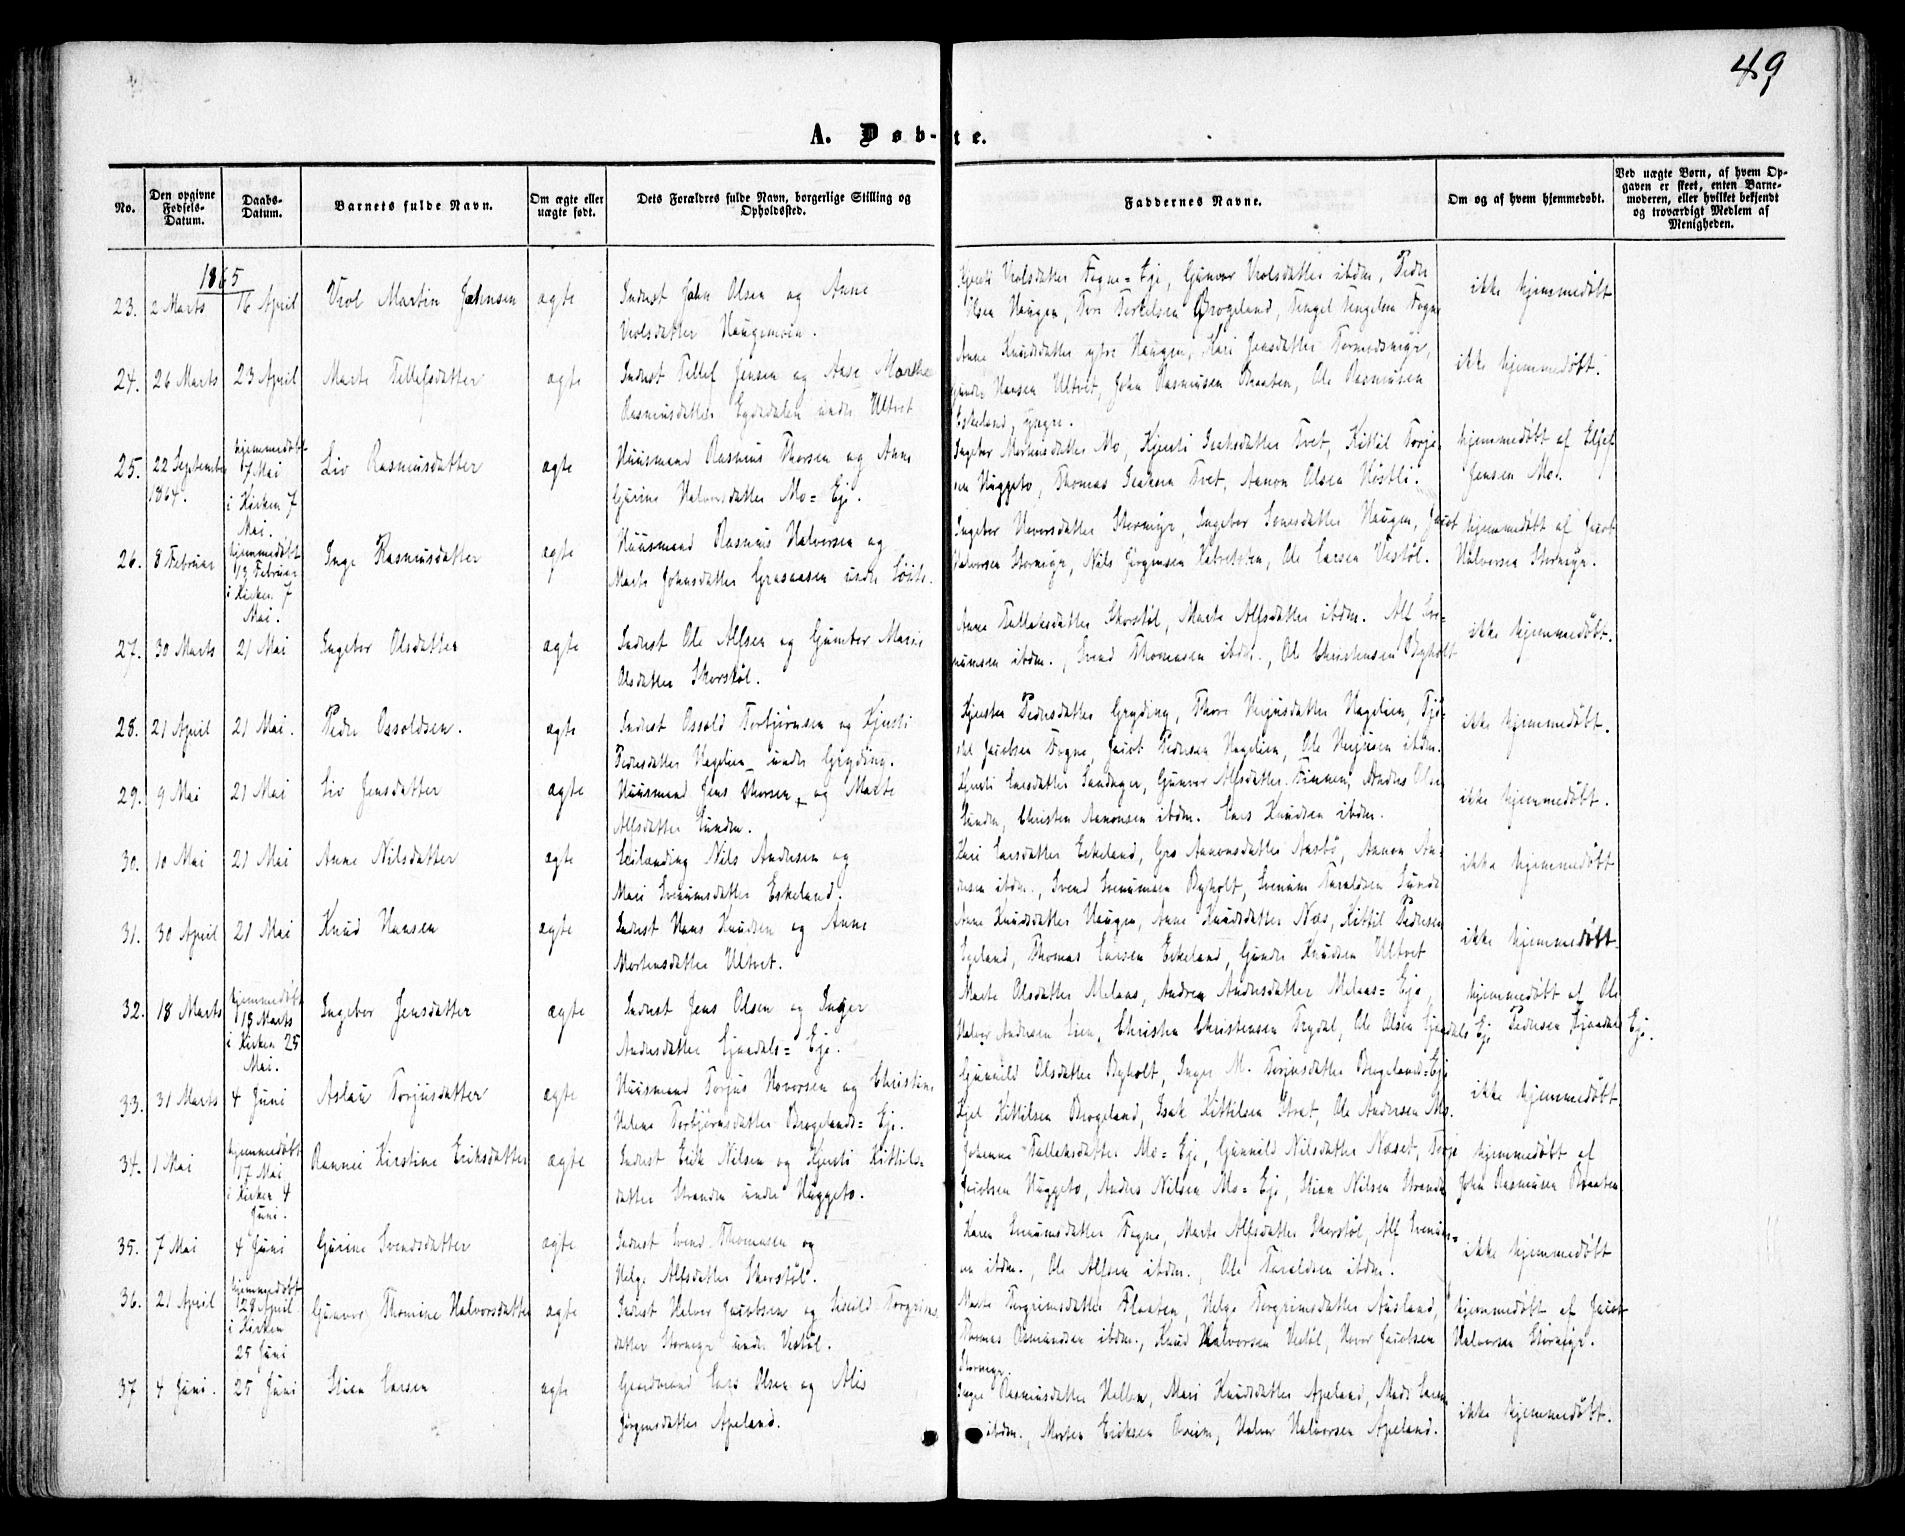 49
A. Døb-te.
No.
Den opgivne Fødsels-Datum.
Daabs-Datum.
Barnets fulde Navn.
Om ægte eller uægte født.
Dets Forældres fulde Navn, borgerlige Stilling og Opholdssted.
Faddernes Navne.
Om og af hvem hjemmedøbt.
Ved uægte Børn, af hvem Opgaven er skeet, enten Barnemoderen, eller hvilket bekjendt og troværdigt Medlem af Menigheden.
1865
23. 2 Marts 16 April Vrol Martin Johnsen ægte Inderst John Olsen og Anne
Vrolsdatter Haugemoen.
Kjersti Vrolsdatter Fogne=Eje, Gunvor Vrolsdatter ibdm., Peder
Olsen Haugen, Tore Terkelsen Brogeland, Tengel Tengelsen Fogne
ikke hjemmedøbt
24. 26 Marts 23 April Marte Tellefsdatter ægte Inderst Tellef Jensen og Aase Marthe
Rasmusdatter Eydedalen under Ultvet
Anne Knudsdatter ytre Haugen, Kari Jensdatter Tormodsmyr,
Gunder Hansen Ultvet, John Rasmusen Braaten, Ole Rasmusen
Eskeland, yngre.
ikke hjemmedøbt.
25. 22 September 1864. hjemmedøbt 7 Mai i Kirken 7 Mai. Liv Rasmusdatter ægte Huusmand Rasmus Thorsen og Anne
Gurine Halvorsdatter Mo=Eje.
Ingebor Mortensdatter Mo, Kjersti Isaksdatter Tvet, Kittil Torje-
sen Huggeto, Thomas Isaksen Tvet, Aanon Olsen Høstli.
hjemmedøbt af Eljel
Jensen Mo.
26. 8 Februar hjemmedøbt 13 Februar i Kirken 7 Mai. Inge Rasmusdatter ægte Huusmand Rasmus Halvorsen og
Marte Johnsdatter Grasaasen under
Ingebor Hovorsdatter Stormyr, Ingebor Haugen, Jacob
Halvorsen Stormyr, Nils Jørgensen Ole Larsen Vestøl.
hjemmedøbt af Jacob
Halvorsen Stormyr.
27. 30 Marts 21 Mai Ingebor Olsdatter ægte Inderst Ole Alfsen og Gumbor Marie
Olsdatter Skorstøl.
Anne Tallaksdatter Skorstøl, Marte Alfsdatter ibdm. Alf Sve-
numsen ibdm., Svend Thomasen ibdm., Ole Christensen Byholt
ikke hjemmedøbt.
28. 21 April 21 Mai. Peder Ossoldsen. ægte Inderst Ossold Torbjørnsen og Kjersti
Pedersdatter Hagelien under Gryding.
Kjersten Pedersdatter Gryding, Thore Verjusdatter Hagelien, Tjø-
stel Jacobsen Fogne, Jacob Pedersen Hagelien, Ole Verjusen ibdm.
ikke hjemmedøbt.
29. 9 Mai 21 Mai Liv Jensdatter ægte Huusmand Jens Thorsen + og Marte
Alfsdatter Sunden.
Kjersti Larsdatter Sandager, Gunvor Alfsdatter Finmen, Anders Olsen
Sunden, Christen Aanonsen ibdm. Lars Knudsen ibdm.
ikke hjemmedøbt.
30. 10 Mai 21 Mai Anne Nilsdatter ægte Leilænding Nils Andersen og
Mari Svenumsdatter Eskeland.
Kari Larsdatter Eskeland, Gro Aanonsdatter Aasbø, Aanon An-
dersen ibdm., Svend Svenumsen Byholt, Svenum Taraldsen Sunde
ikke hjemmedøbt
31. 30 April 21 Mai Knud Hansen ægte Inderst Hans Knudsen og Anne
Mortensdatter Ultvet.
Anne Knudsdatter Haugen, Anne Knudsdatter Næs, Kittil Pedersen
Egeland, Thomas Larsen Eskeland, Gunder Knudsen Ultvet
ikke hjemmedøbt.
32. 18 Marts hjemmedøbt 18 Marts i Kirken 25 Mai. Ingebor Jensdatter ægte Inderst Jens Olsen og Inger
Andersdatter Ejendals=Eje.
Marte Olsdatter Melaas, Andrea Andersdatter Melaas=Eje,
Halvor Andersen Lien, Christen Christensen Trydal, Ole Olsen Eje
hjemmedøbt af Ole
Pedersen Eje.
33. 31 Marts 4 Juni Aslau Torjusdatter ægte Huusmand Torjus Hovorsen og Christine
Helene Torbjørnsdatter Brogelands=Eje.
Gunnild Olsdatter Byholt, Inger M. Torjusdatter Brogeland=Eje
Kjel Kittilsen Brogeland, Isak Kittilsen Tvet, Ole Andersen Mo.
ikke hjemmedøbt.
34. 1 Mai hjemmedøbt 17 Mai i Kirken 4 Juni. Rannei Kirstine Eriksdatter ægte Inderst Erik Nilsen og Kjersti Kittils-
datter Stranden under Huggeto.
Johanne Tallaksdatter Mo=Eje, Gunnild Nilsdatter Næset, Torje
Jacobsen Huggeto, Anders Nilsen Mo=Eje, Stian Nilsen Stranden
hjemmedøbt af
John Rasmusen Braaten
35. 7 Mai 4 Juni Gurine Svendsdatter ægte Inderst Svend Thomasen og
Helge Alfsdatter Skorstøl.
Karen Svenumsdatter Fogne, Marte Alfsdatter Skorstøl, Alf Svenums-
sen ibdm., Ole Alfsen ibdm., Ole Taraldsen ibdm.
ikke hjemmedøbt
36. 21 April hjemmedøbt 29 April i Kirken 25 Juni Gunvor Thomine Halvorsdatter ægte Inderst Halvor Jacobsen og Siseild Torgrims-
datter Stormyr under Vestøl.
Marte Torgrimsdatter Flaaten, Helge Torgrimsdatter Ausland,
Thomas Osmundsen ibdm., Knud Halvorsen Vestøl, Hovor Jacobsen
Stormyr.
hjemmedøbt af Jacob
Halvorsen Stormyr.
37 4 Juni. 25 Juni Stian Larsen ægte Gaardmand Lars Olsen og Alis
Jørgensdatter Apeland.
Inger Rasmusdatter Hellen, Mari Knudsdatter Apeland, Mads Larsen
ibdm., Morten Eriksen Oveim, Halvor Halvorsen Apeland.
ikke hjemmedøbt.